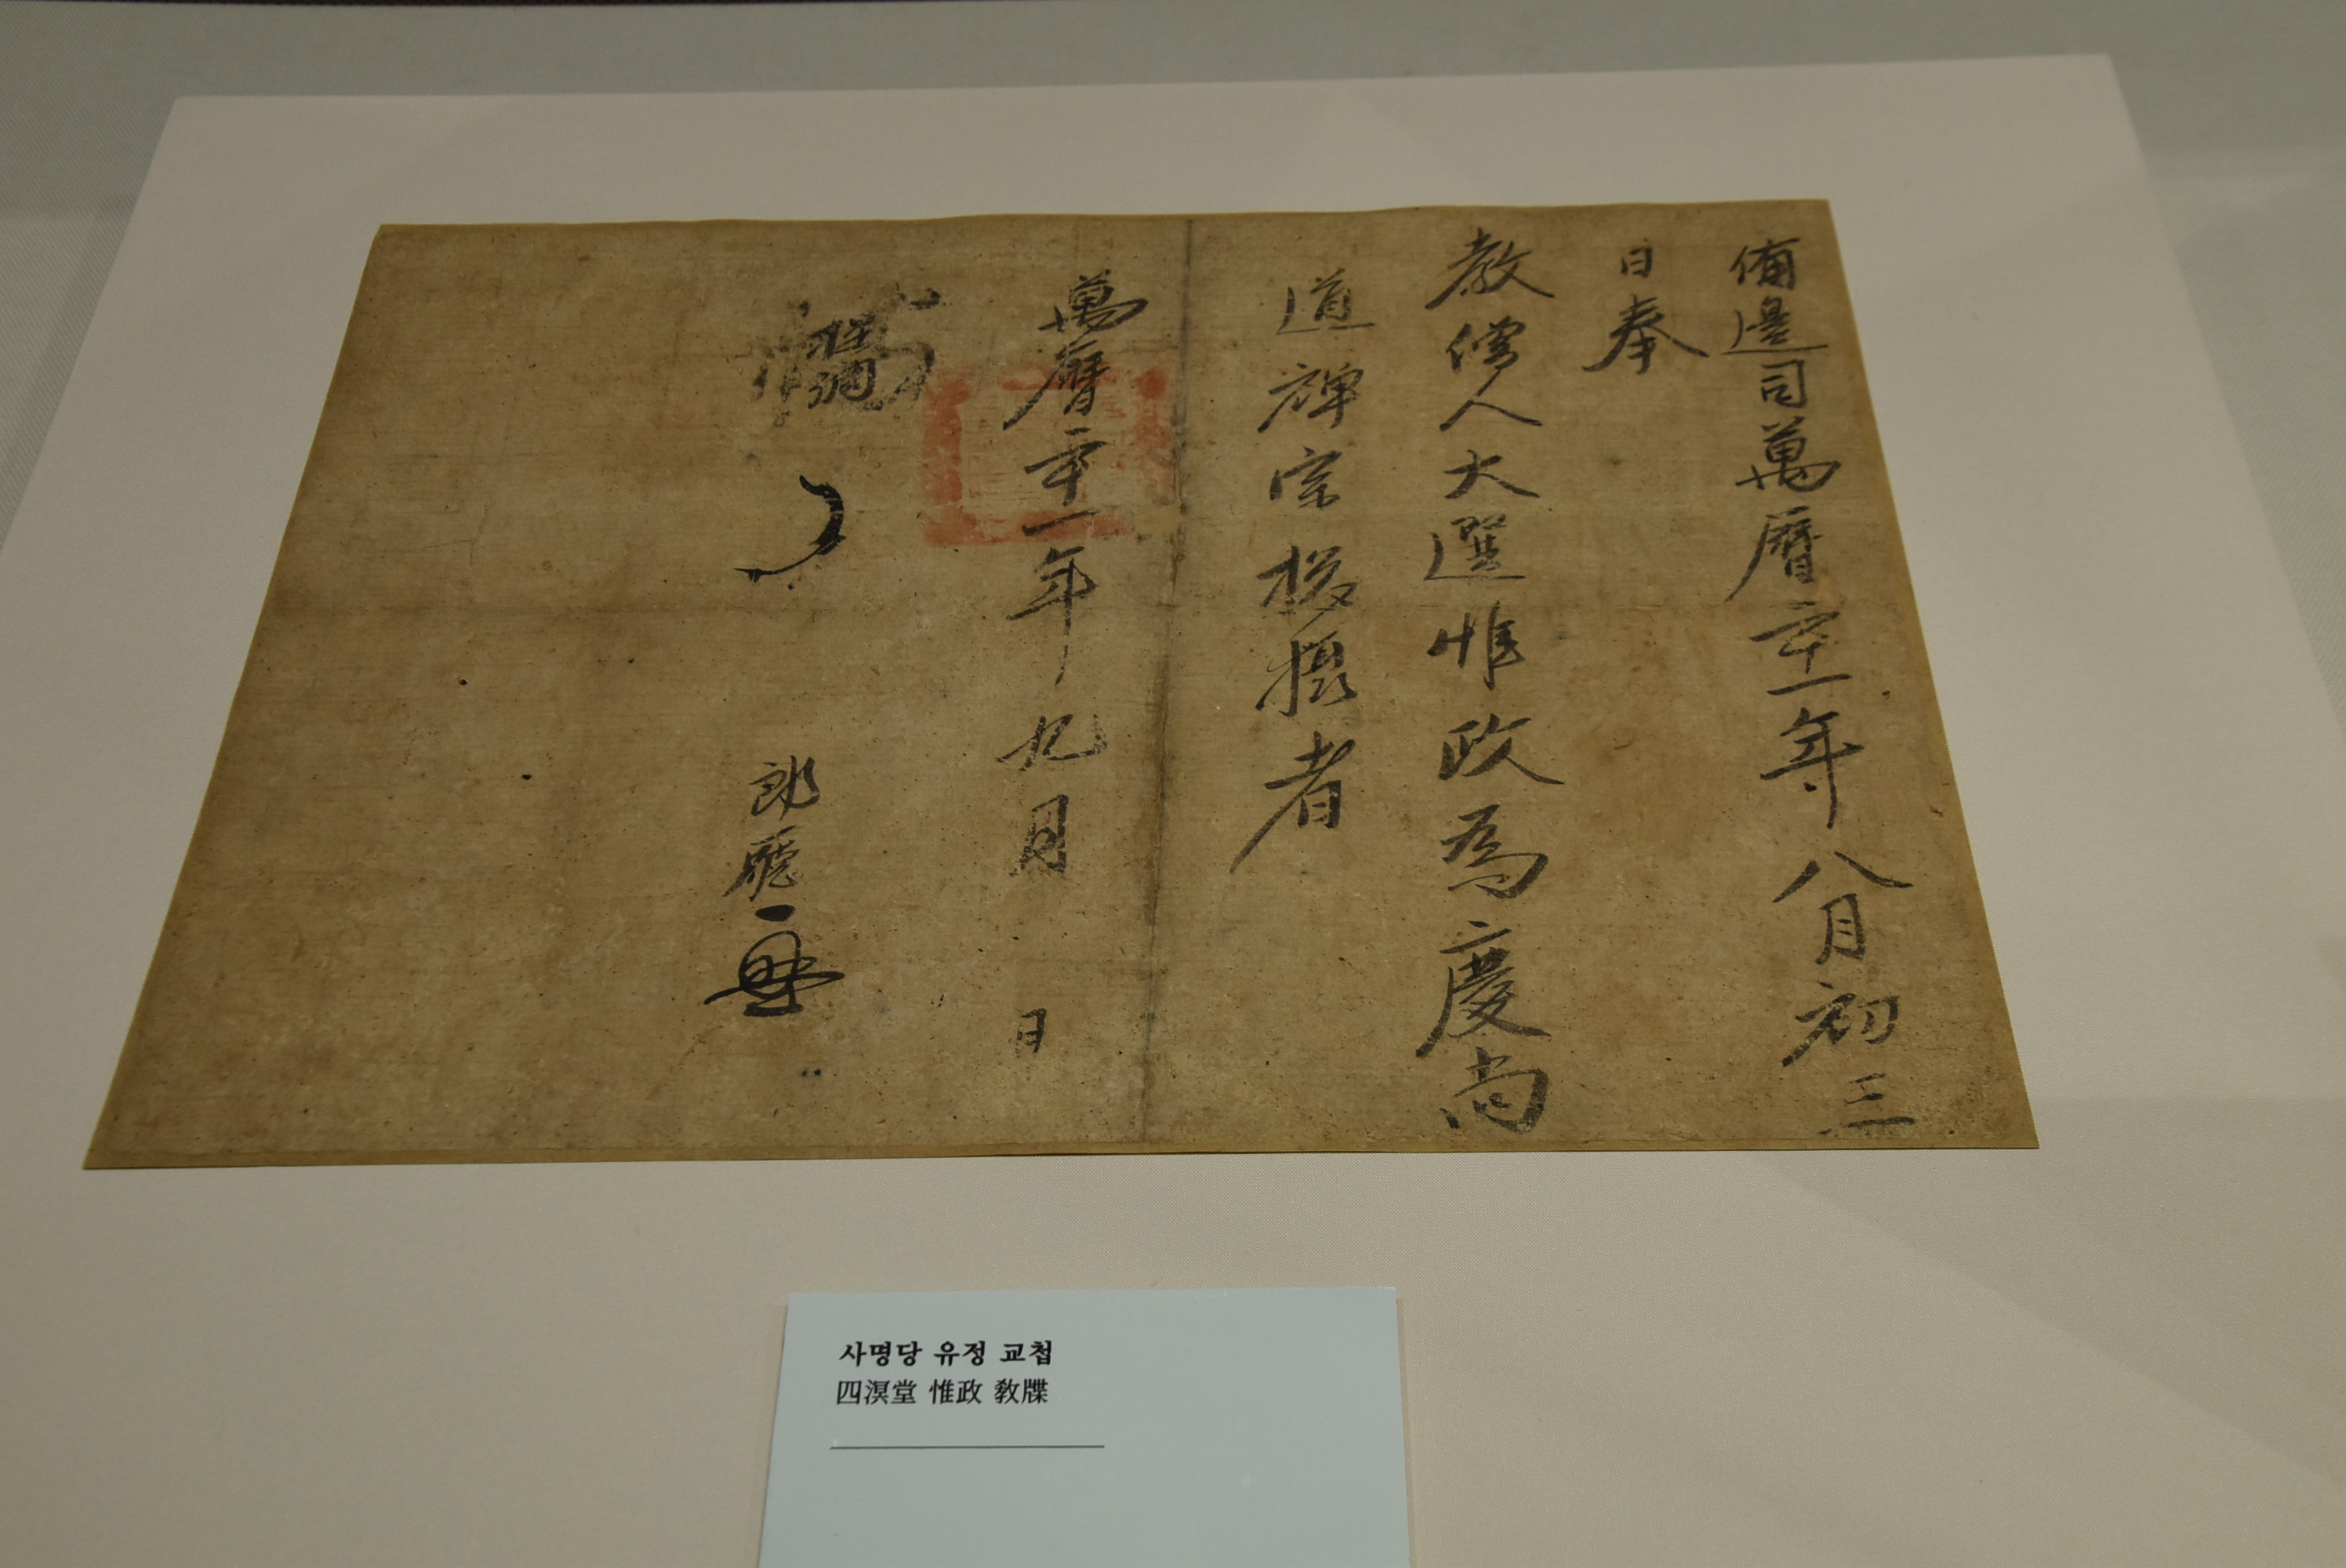 備邊司萬曆二十一年八月初三
日奉
教僧人大選惟政爲慶尙
道禪宗摠攝者
萬曆二十一年九月 日
郎廳
사명당 유정 교첩
四溟堂 惟政 敎牒